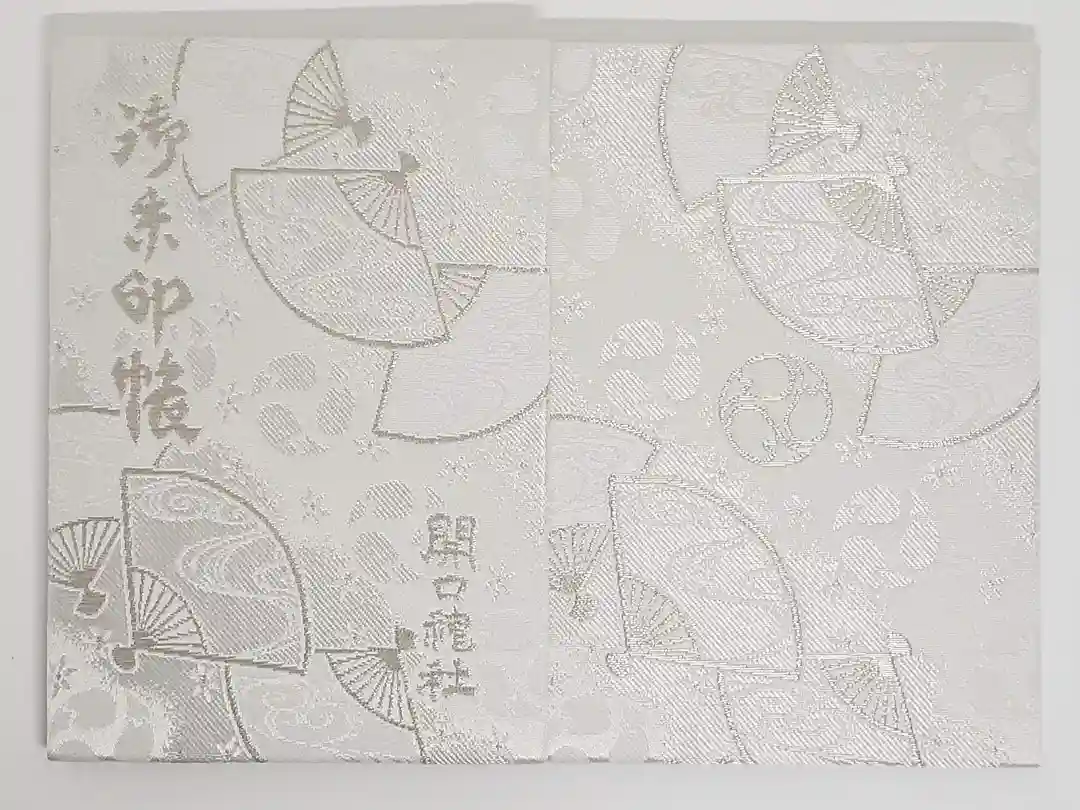 御朱印帳
開口神社